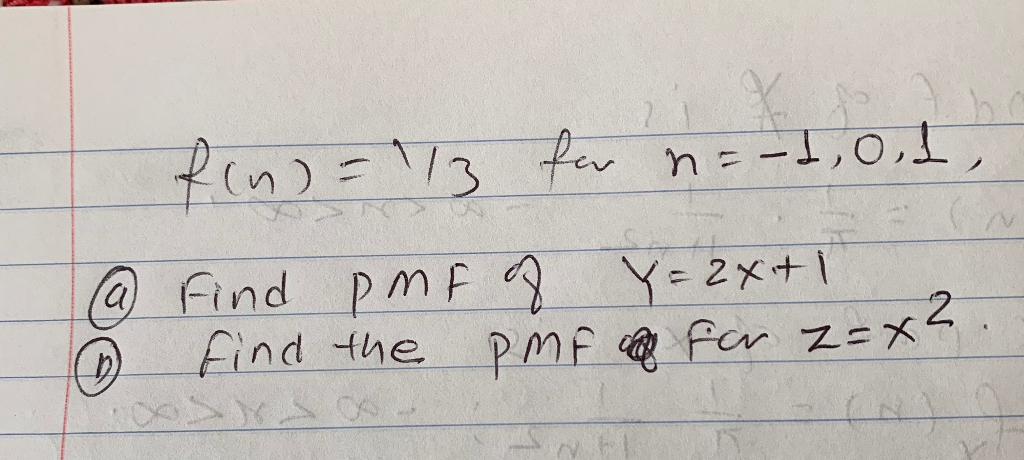 f(n) = 1/3 for n = -1, 0, 1,
(a) Find PMF of Y = 2x+1
(b) find the PMF for z = x².